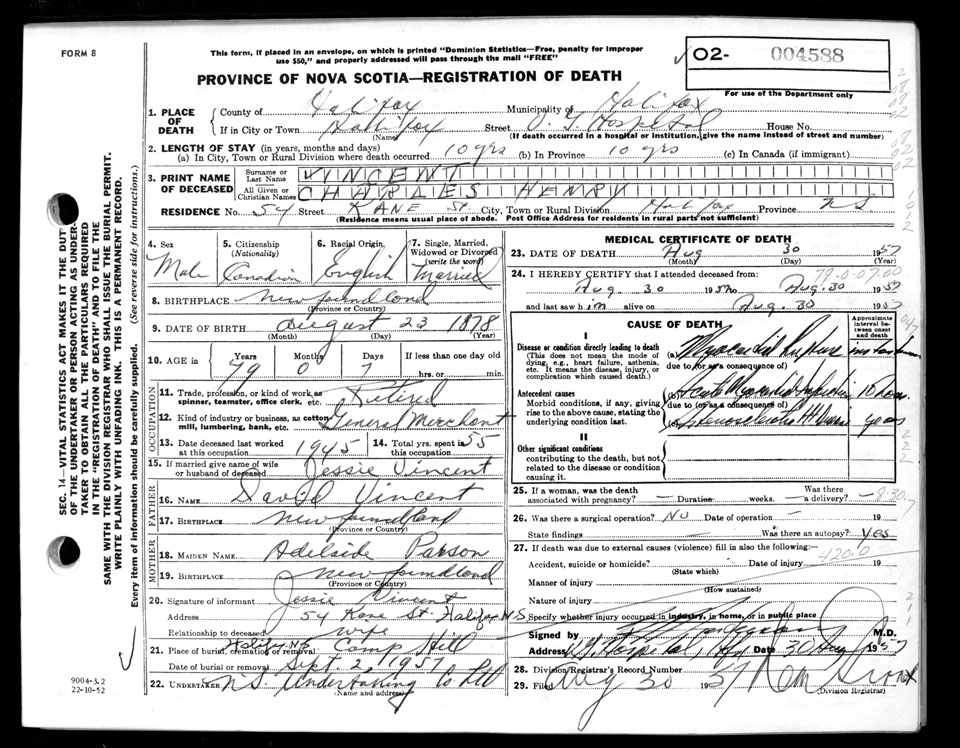 FORM 8
This form, if placed in an envelope, on which is printed "Dominion Statistics—Free, penalty for improper
use $50," and properly addressed will pass through the mail "FREE"
PROVINCE OF NOVA SCOTIA—REGISTRATION OF DEATH
02- 004588
For use of the Department only
1. PLACE OF DEATH
County of Halifax Municipality of Halifax
If in City or Town Halifax Street V. G. Hospital House No.
(Name) (If death occurred in a hospital or institution, give the name instead of street and number)
2. LENGTH OF STAY (in years, months and days)
(a) In City, Town or Rural Division where death occurred 10 yrs (b) In Province 10 yrs (c) In Canada (if immigrant)
3. PRINT NAME OF DECEASED
Surname or Last Name VINCENT
All Given or Christian Names CHARLES HENRY
RESIDENCE No. 54 Street KANE St. City, Town or Rural Division Halifax Province NS
(Residence means usual place of abode. Post Office Address for residents in rural parts not sufficient)
4. Sex Male
5. Citizenship (Nationality) Canadian
6. Racial Origin English
7. Single, Married, Widowed or Divorced (write the word) Married
8. BIRTHPLACE Newfoundland
(Province or Country)
9. DATE OF BIRTH August 23 1878
(Month) (Day) (Year)
10. AGE in Years 79 Months 0 Days 7 If less than one day old hrs. or min.
OCCUPATION
11. Trade, profession, or kind of work as spinner, teamster, office clerk, etc. Retired
12. Kind of industry or business, as cotton mill, lumbering, bank, etc. General Merchant
13. Date deceased last worked at this occupation 1945 14. Total yrs. spent in 55
15. If married give name of wife or husband of deceased Jessie Vincent
FATHER
16. NAME David Vincent
17. BIRTHPLACE Newfoundland
(Province or Country)
MOTHER
18. MAIDEN NAME Adelaide Parson
19. BIRTHPLACE Newfoundland
(Province or Country)
20. Signature of informant Jessie Vincent
Address 54 Kane St. Halifax N.S
Relationship to deceased wife
21. Place of burial, cremation or removal Halifax NS Camp Hill
Date of burial or removal Sept. 2, 1957
22. UNDERTAKER N.S. Undertaking Co Ltd
(Name and address)
MEDICAL CERTIFICATE OF DEATH
23. DATE OF DEATH Aug 30 1957
(Month) (Day) (Year)
79.0.07.00
24. I HEREBY CERTIFY that I attended deceased from:
Aug. 30 1957 to Aug. 30 1957
and last saw him alive on Aug. 30 1957
CAUSE OF DEATH
Approximate interval between onset and death
I
Disease or condition directly leading to death
(This does not mean the mode of dying, e.g., heart failure, asthenia, etc. It means the disease, injury, or complication which caused death.)
(a) Myocardial Rupture
due to (or as a consequence of)
Antecedent causes
Morbid conditions, if any, giving rise to the above cause, stating the underlying condition last.
(b) Acute Myocardial
due to (or as a consequence of)
(c)
II
Other significant conditions
contributing to the death, but not related to the disease or condition causing it.
25. If a woman, was the death associated with pregnancy? — Duration weeks. — Was there a delivery? —
26. Was there a surgical operation? No Date of operation — 19
State findings Was there an autopsy? Yes
27. If death was due to external causes (violence) fill in also the following:—
420.0
Accident, suicide or homicide? Date of injury 19
(State which)
Manner of injury
(How sustained)
Nature of injury
Specify whether injury occurred in industry, in home, or in public place
Signed by M.D.
Address V. G. Hospital, Hfx Date 30 Aug 1957
28. Division Registrar's Record Number
29. Filed Aug 30 1957
(Division Registrar)
SEC. 14—VITAL STATISTICS ACT MAKES IT THE DUTY
OF THE UNDERTAKER OR PERSON ACTING AS UNDERTAKER TO OBTAIN ALL THE PARTICULARS REQUIRED
IN THE "REGISTRATION OF DEATH" AND TO FILE THE
SAME WITH THE DIVISION REGISTRAR WHO SHALL ISSUE THE BURIAL PERMIT.
WRITE PLAINLY WITH UNFADING INK. THIS IS A PERMANENT RECORD.
Every item of information should be carefully supplied. (See reverse side for instructions.)
9004-3.2
22-10-52